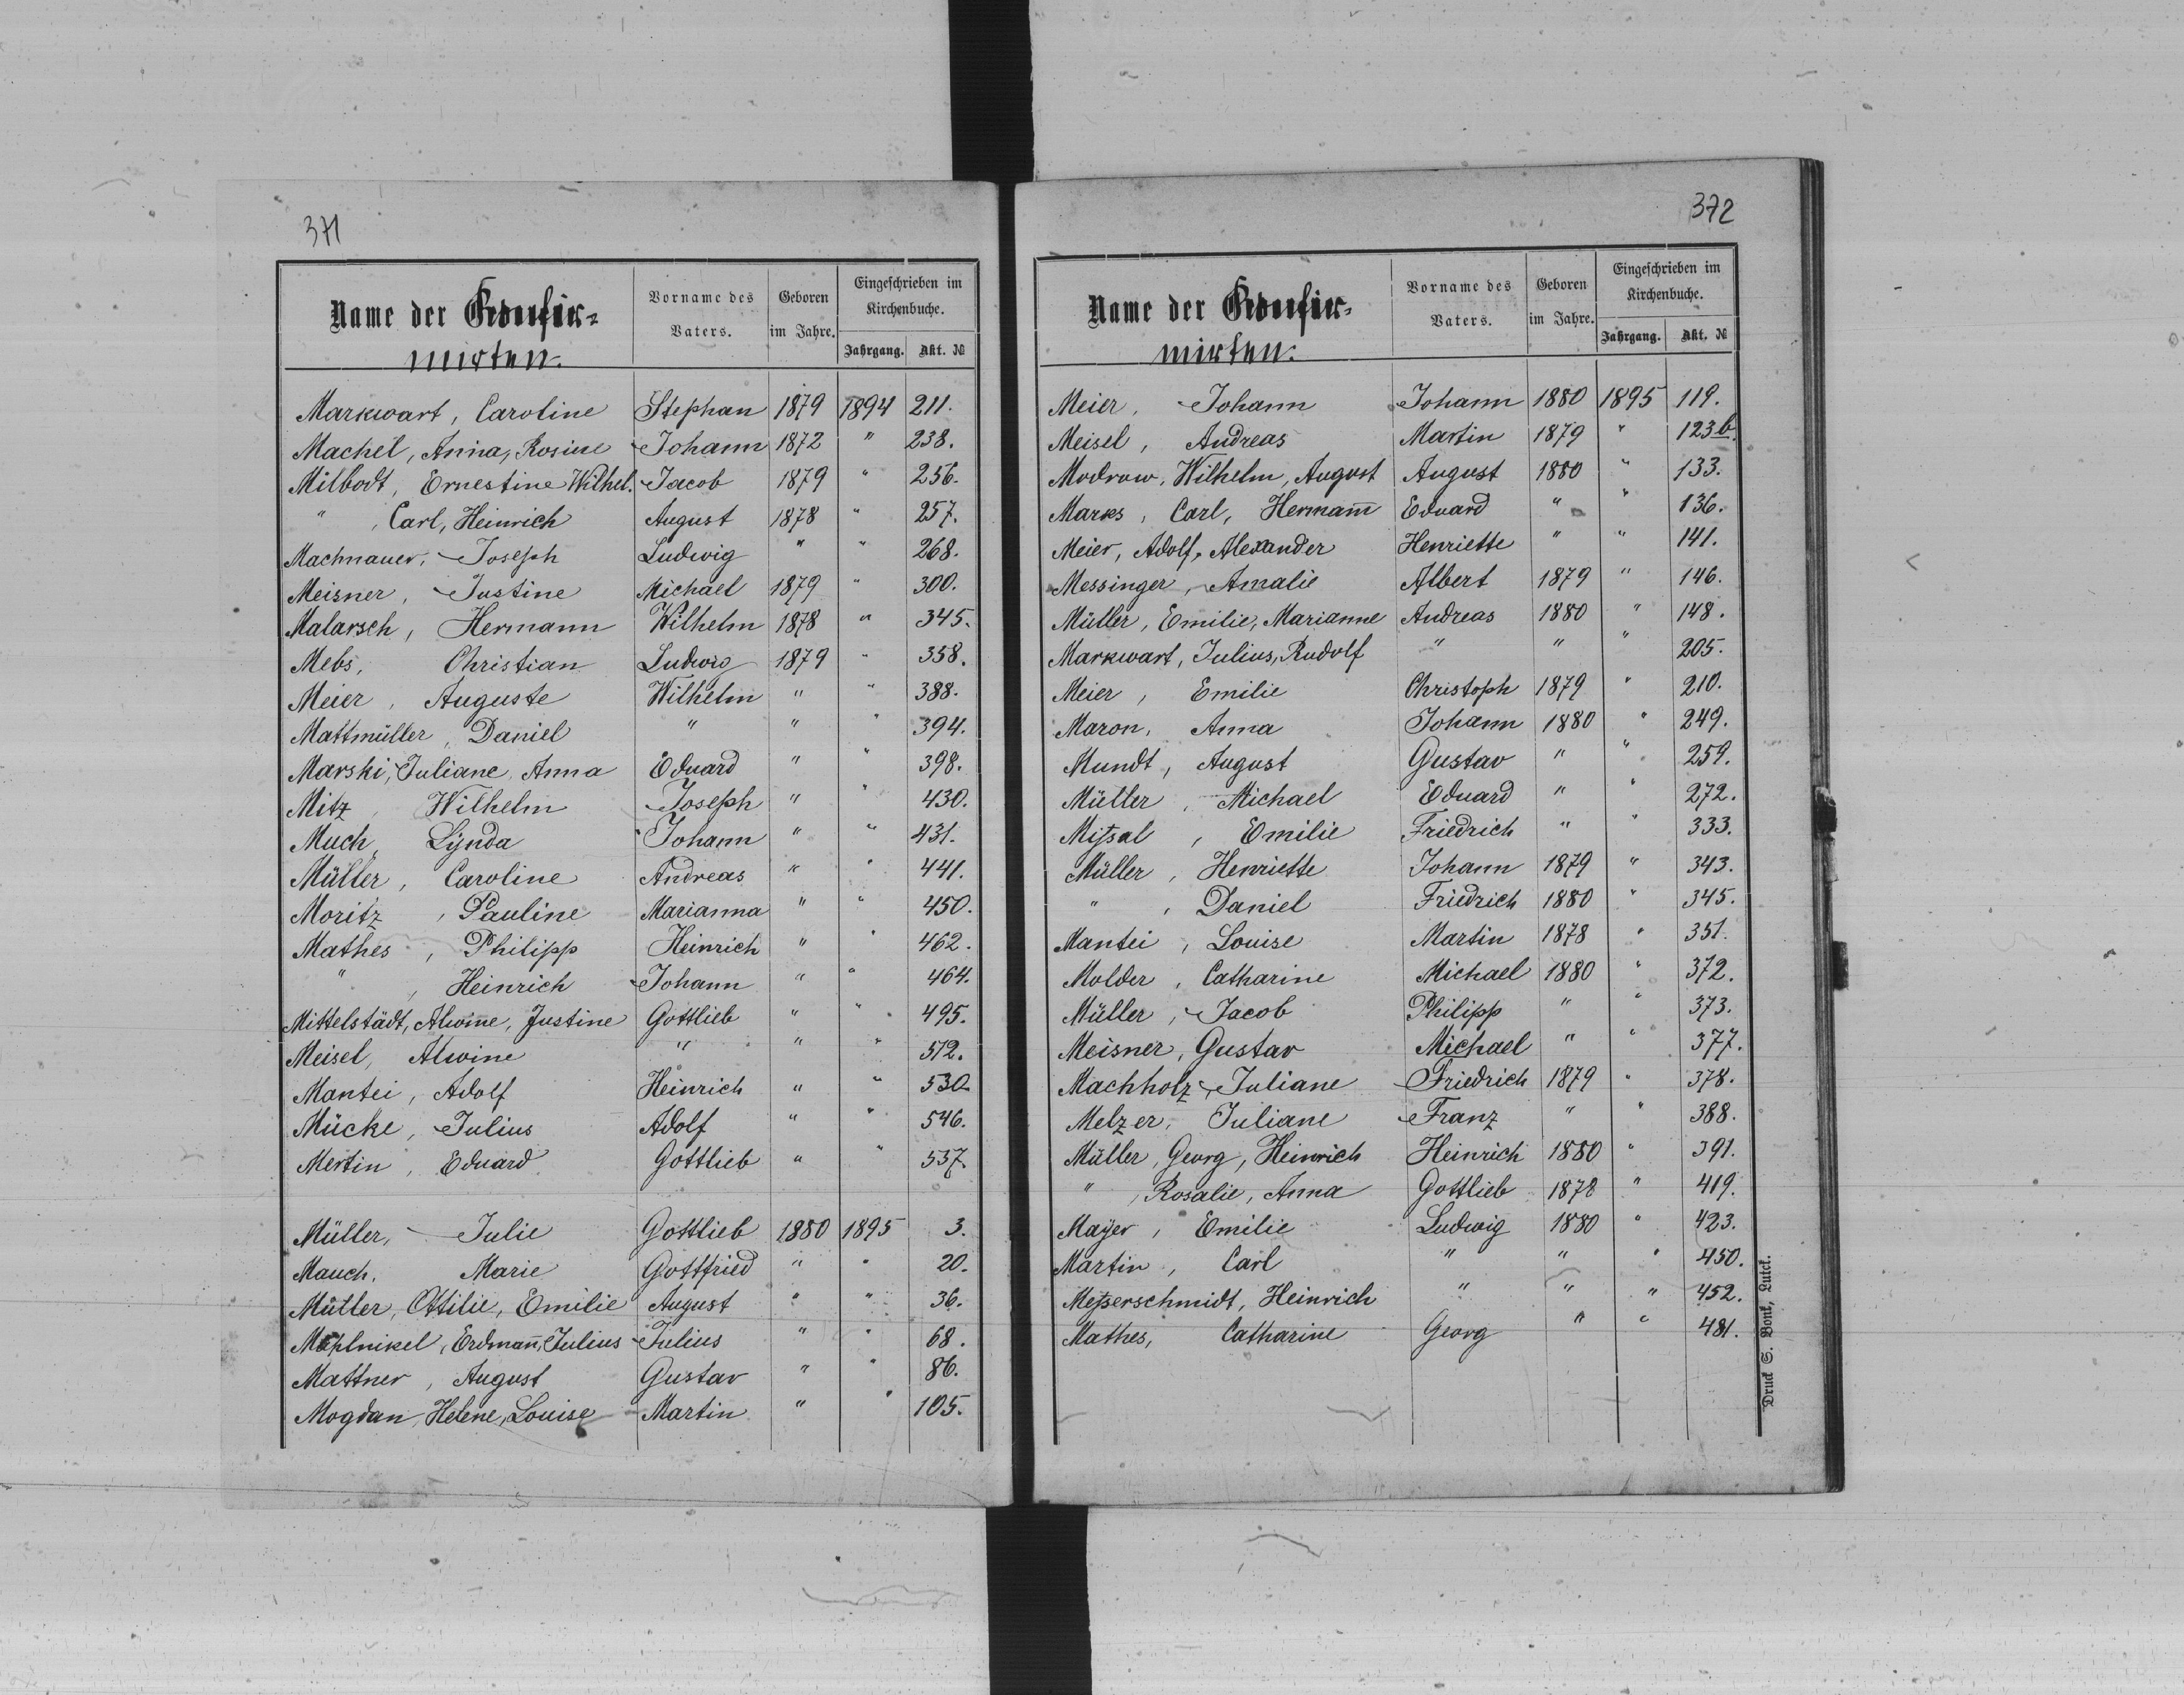 371
Name der Konfir=
mirten.
Vorname des Vaters.
Geboren im Jahre.
Eingeschrieben im Kirchenbuche.
Jahrgang. Akt. №
Markwart, Caroline Stephan 1879 1894 211.
Machel, Anna, Rosine Johann 1872 " 238.
Milbodt, Ernestine Wilhel. Jacob 1879 " 256.
" , Carl, Heinrich August 1878 " 257.
Machnauer, Joseph Ludwig " " 268.
Meisner, Justine Michael 1879 " 300.
Malarsch, Hermann Wilhelm 1878 " 345.
Mebs, Christian Ludwig 1879 " 358.
Meier, Auguste Wilhelm " " 388.
Mattmüller, Daniel " " " 394.
Marski, Juliane Anna Eduard " " 398.
Mitz, Wilhelm Joseph " " 430.
Much, Lynda Johann " " 431.
Müller, Caroline Andreas " " 441.
Moritz, Pauline Marianna " " 450.
Mathes, Philipp Heinrich " " 462.
" , Heinrich Johann " " 464.
Mittelstädt, Alwine, Justine Gottlieb " " 495.
Meisel, Alwine " " " 512.
Mantei, Adolf Heinrich " " 530.
Mücke, Julius Adolf " " 546.
Mertin, Eduard Gottlieb " " 557.
Müller, Julie Gottlieb 1880 1895 3.
Mauch, Marie Gottfried " " 20.
Müller, Ottilie, Emilie August " " 36.
Erdmann, Julius Julius " " 68.
Mattner, August Gustav " " 86.
Mogdan, Helene, Louise Martin " " 105.
372
Name der Konfir=
mirten.
Vorname des Vaters.
Geboren im Jahre.
Eingeschrieben im Kirchenbuche.
Jahrgang. Akt. №
Meier, Johann Johann 1880 1895 119.
Meisel, Andreas Martin 1879 " 123b.
Modrow, Wilhelm, August August 1880 " 133.
Marks, Carl, Hermann Eduard " " 136.
Meier, Adolf, Alexander Henriette " " 141.
Messinger, Amalie Albert 1879 " 146.
Müller, Emilie, Marianne Andreas 1880 " 148.
Markwart, Julius, Rudolf " " " 205.
Meier, Emilie Christoph 1879 " 210.
Maron, Anna Johann 1880 " 249.
Mundt, August Gustav " " 259.
Müller, Michael Eduard " " 272.
Mitzsal, Emilie Friedrich " " 333.
Müller, Henriette Johann 1879 " 343.
" , Daniel Friedrich 1880 " 345.
Mantei, Louise Martin 1878 " 351.
Molder, Catharine Michael 1880 " 372.
Müller, Jacob Philipp " " 373.
Meisner, Gustav Michael " " 377.
Machholz, Juliane Friedrich 1879 " 378.
Melzer, Juliane Franz " " 388.
Müller, Georg, Heinrich Heinrich 1880 " 391.
" , Rosalie, Anna Gottlieb 1878 " 419.
Mayer, Emilie Ludwig 1880 " 423.
Martin, Carl " " " 450.
Meßerschmidt, Heinrich " " " 452.
Mathes, Catharine Georg " " 481.
Druck S. Bonk, Lutck.